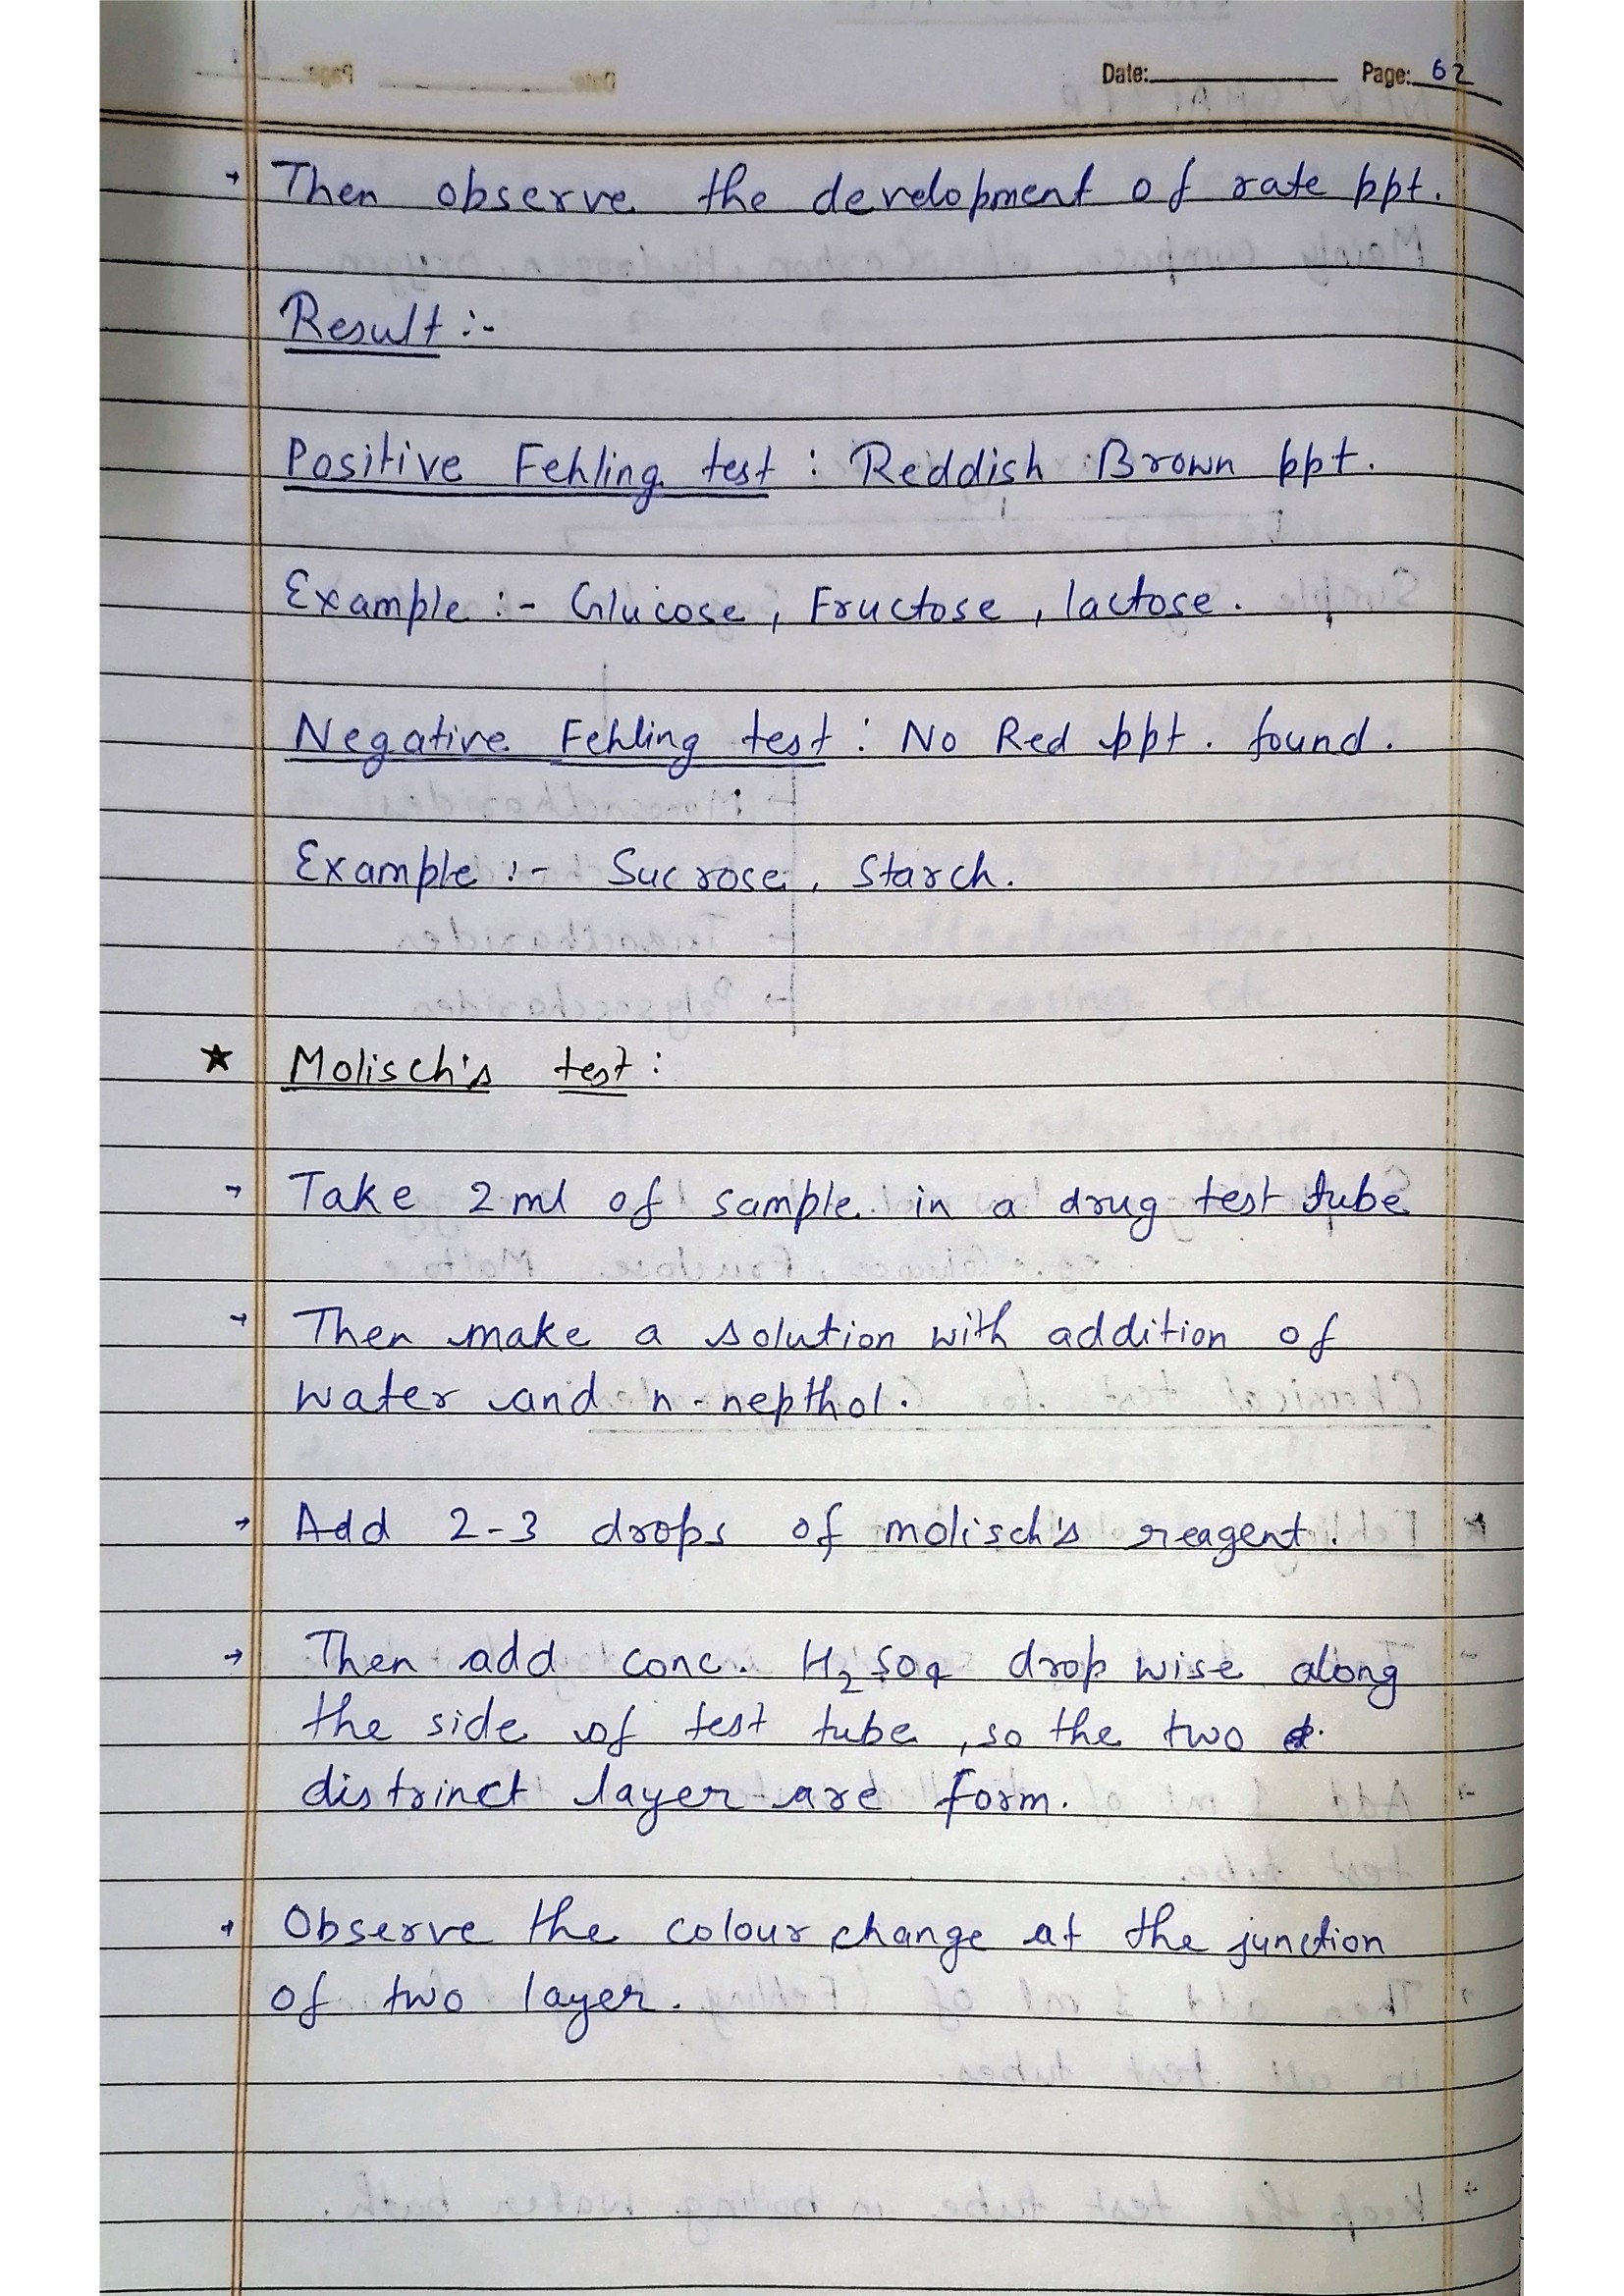 Date: Page: 62
→ Then observe the development of rate ppt.
Result :-
Positive Fehling test : Reddish Brown ppt.
Example :- Glucose, Fructose, lactose.
Negative Fehling test : No Red ppt. found.
Example :- Sucrose, Starch.
★ Molisch's test :
→ Take 2 ml of sample in a drug test tube
→ Then make a solution with addition of
water and n-nepthol.
→ Add 2-3 drops of molisch's reagent.
→ Then add conc. H₂SO₄ drop wise along
the side of test tube, so the two
distrinct layer are form.
→ Observe the colour change at the junction
of two layer.